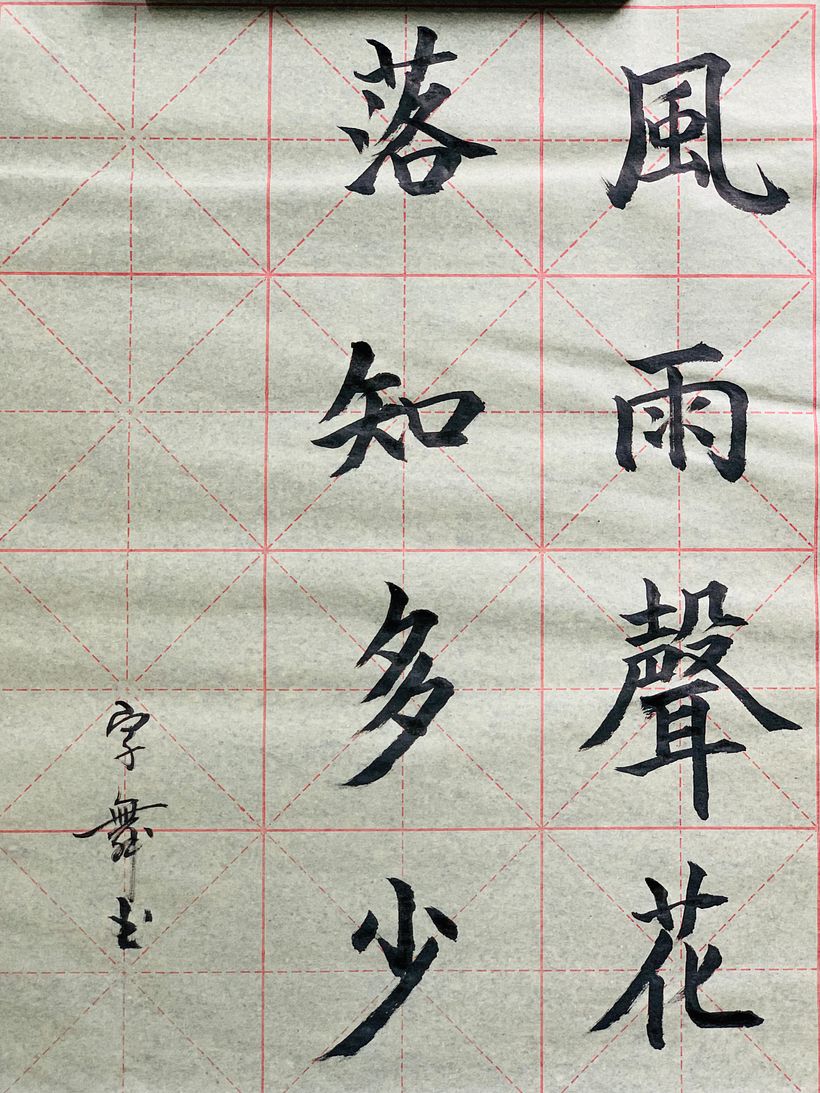 風雨聲花
落知多少
字舞书